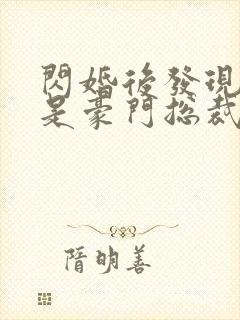 閃婚後發現
是豪門總裁
隋明善